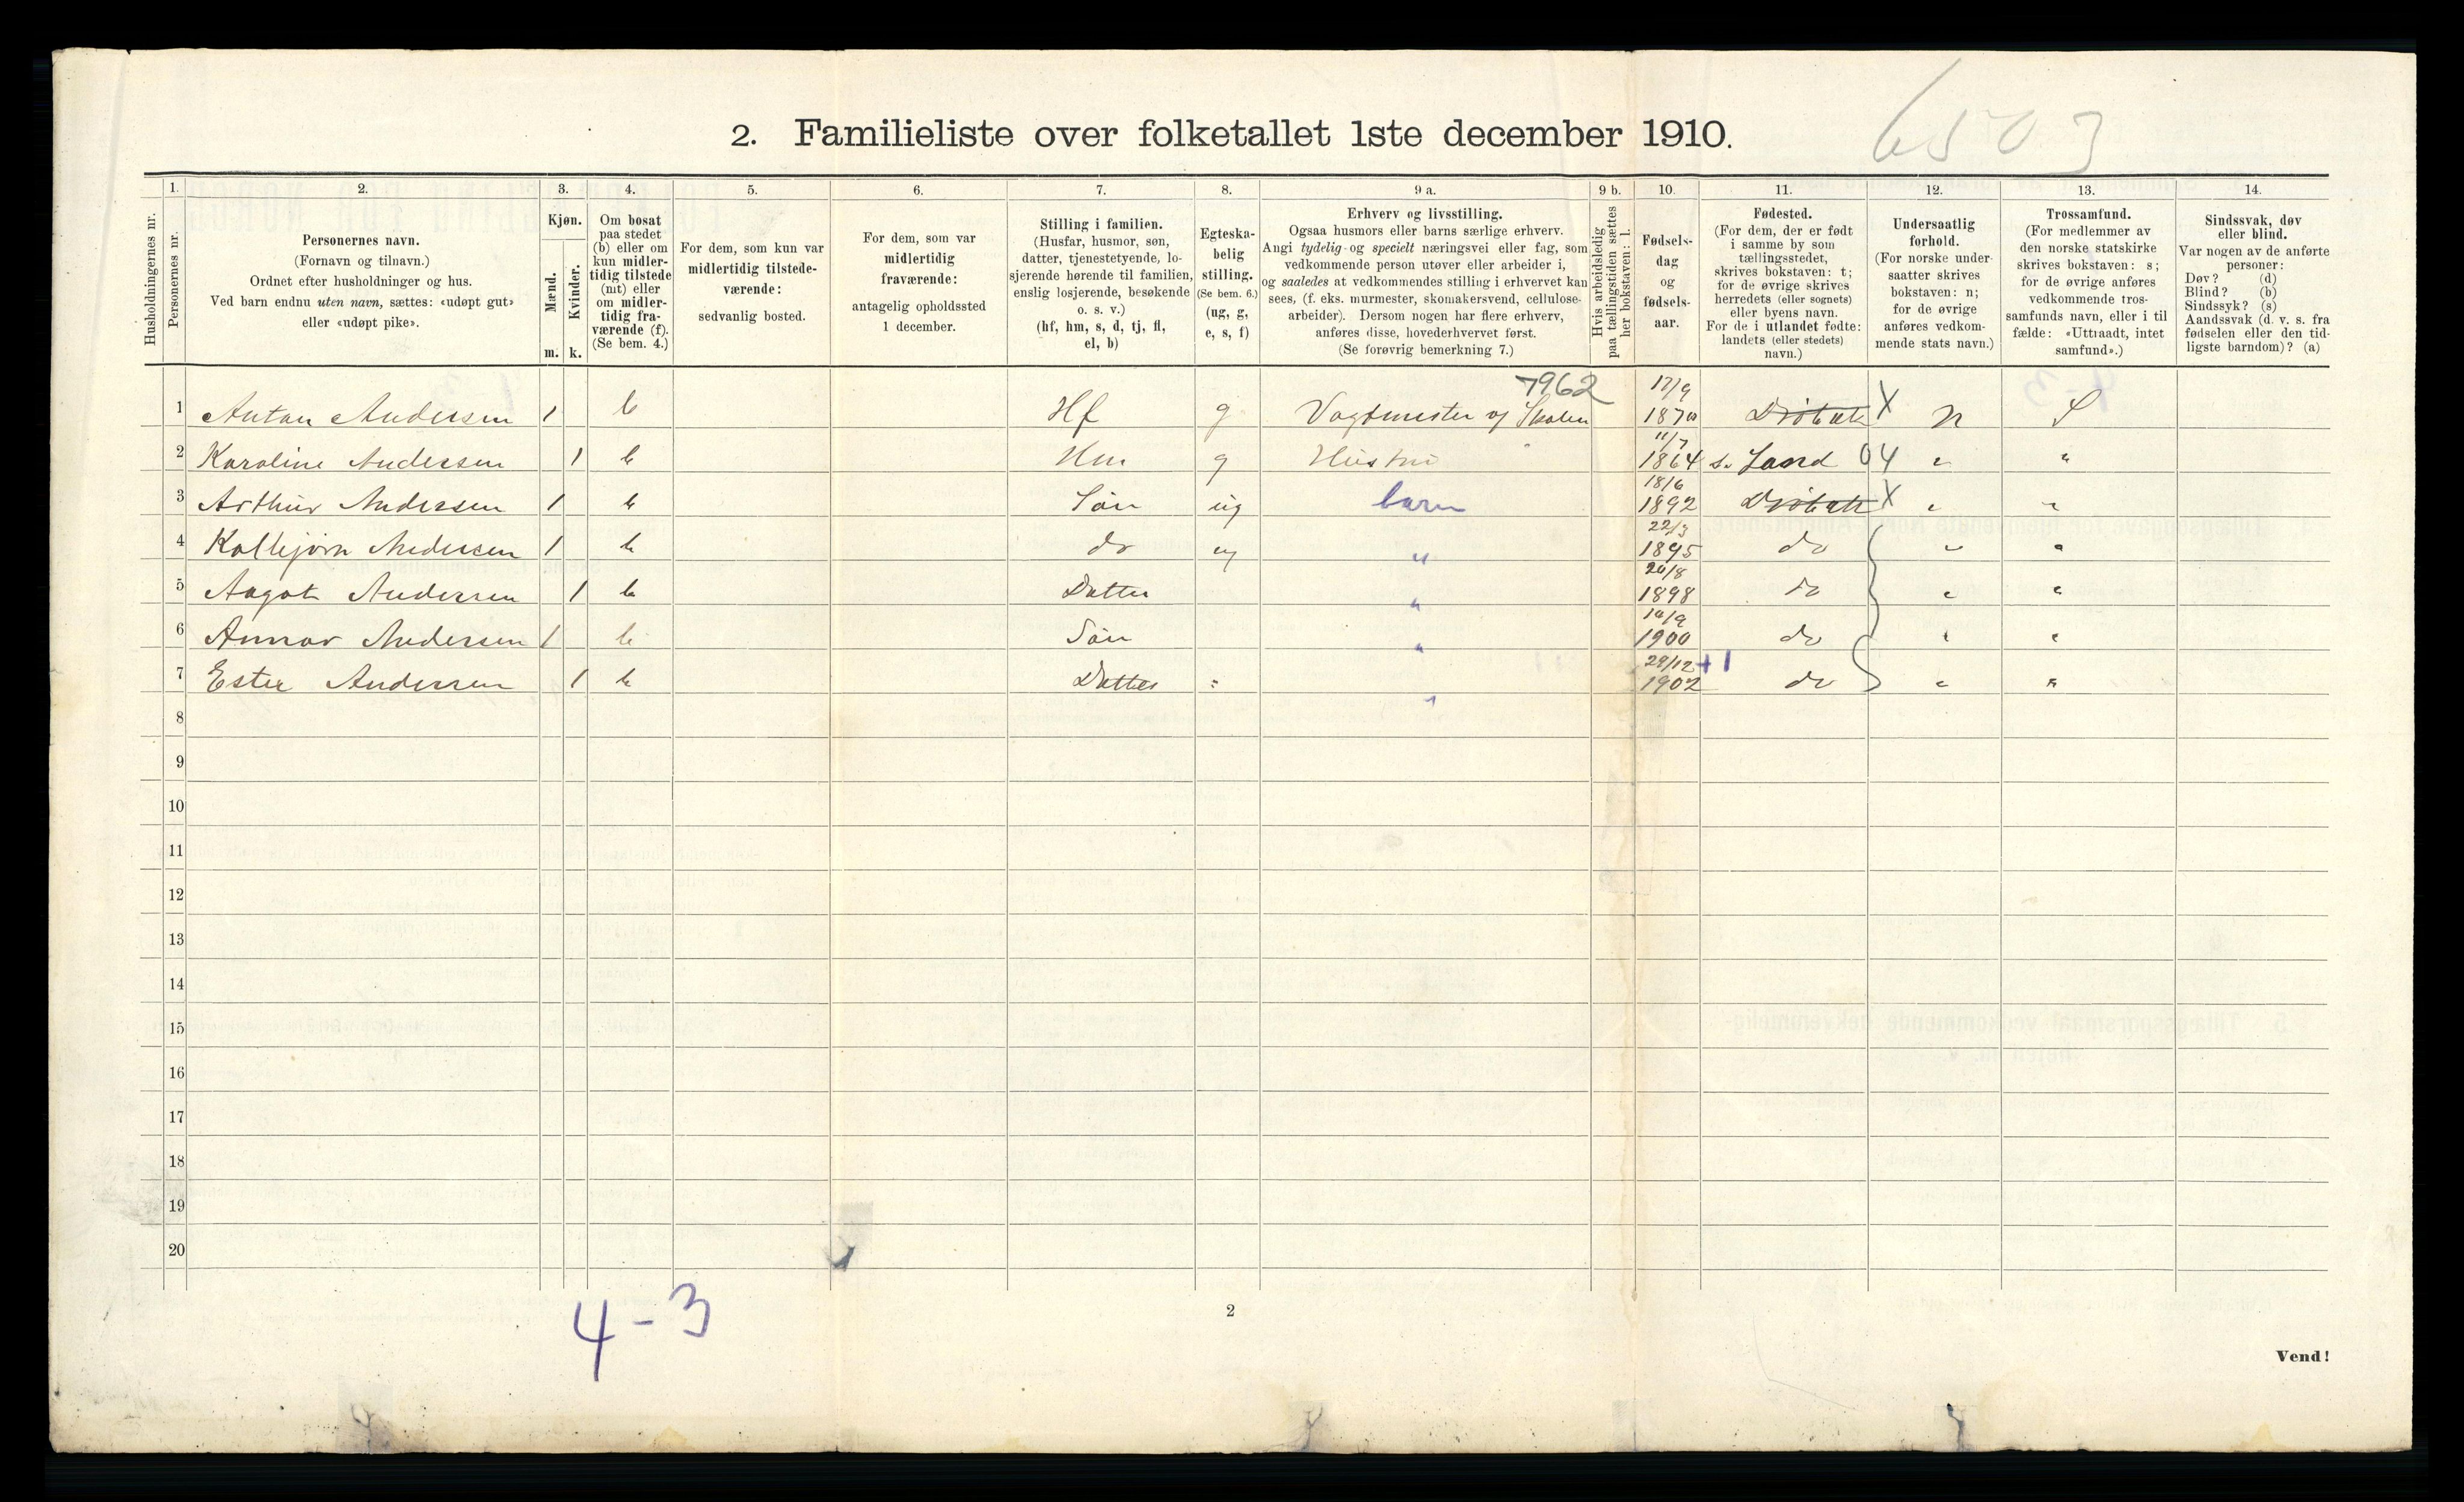 6503
2. Familieliste over folketallet 1ste december 1910.
Husholdningernes nr.
1.
Personernes nr.
2.
Personernes navn.
(Fornavn og tilnavn.)
Ordnet efter husholdninger og hus.
Ved barn endnu uten navn, sættes: «udøpt gut»
eller «udøpt pike».
3.
Kjøn.
Mænd.
m.
Kvinder.
k.
4.
Om bosat
paa stedet
(b) eller om
kun midler-
tidig tilstede
(mt) eller
om midler-
tidig fra-
værende (f).
(Se bem. 4.)
5.
For dem, som kun var
midlertidig tilstede-
værende:
sedvanlig bosted.
6.
For dem, som var
midlertidig
fraværende:
antagelig opholdssted
1 december.
7.
Stilling i familien.
(Husfar, husmor, søn,
datter, tjenestetyende, lo-
sjerende hørende til familien,
enslig losjerende, besøkende
o. s. v.)
(hf, hm, s, d, tj, fl,
el, b)
8.
Egteska-
belig
stilling.
(Se bem. 6.)
(ug, g,
e, s, f)
9 a.
Erhverv og livsstilling.
Ogsaa husmors eller barns særlige erhverv.
Angi tydelig og specielt næringsvei eller fag, som
vedkommende person utøver eller arbeider i,
og saaledes at vedkommendes stilling i erhvervet kan
sees, (f. eks. murmester, skomakersvend, cellulose-
arbeider). Dersom nogen har flere erhverv,
anføres disse, hovederhvervet først.
(Se forøvrig bemerkning 7.)
9 b.
Hvis arbeidsledig
paa tællingstiden sættes
her bokstaven: l.
10.
Fødsels-
dag
og
fødsels-
aar.
11.
Fødested.
(For dem, der er født
i samme by som
tællingsstedet,
skrives bokstaven: t;
for de øvrige skrives
herredets (eller sognets)
eller byens navn.
For de i utlandet fødte:
landets (eller stedets)
navn.)
12.
Undersaatlig
forhold.
(For norske under-
saatter skrives
bokstaven: n;
for de øvrige
anføres vedkom-
mende stats navn.)
13.
Trossamfund.
(For medlemmer av
den norske statskirke
skrives bokstaven: s;
for de øvrige anføres
vedkommende tros-
samfunds navn, eller i til
fælde: «Uttraadt, intet
samfund».)
14.
Sindssvak, døv
eller blind.
Var nogen av de anførte
personer:
Døv? (d)
Blind? (b)
Sindssyk? (s)
Aandssvak (d. v. s. fra
fødselen eller den tid-
ligste barndom)? (a)
7962
1 Antan Andersen 1 b Hf g Vagtmester og Skolen 17/9 1870 Drøbak X N S
2 Karoline Andersen 1 b Hm g Hustru 11/7 1864 s. Land 04 " "
3 Arthur Andersen 1 b Søn ug barn 18/6 1892 Drøbak X " "
4 Kolbjørn Andersen 1 b do ug " 22/3 1895 do " "
5 Aagot Andersen 1 b Datter " 20/8 1898 do " "
6 Annar Andersen 1 b Søn " 1900 do " "
7 Ester Andersen 1 b Datter " " 29/12 +1 1902 do " "
8
9
10
11
12
13
14
15
16
17
18
19
20
4-3
2
Vend!